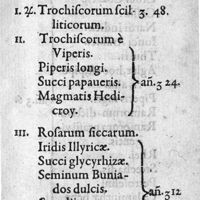 I. ℞. Trochiſcorum ſcil- ʒ. 48.
liticorum.
II. Trochiſcorum è
Viperis.
Piperis longi.
Succi papaueris. añ. ʒ 24.
Magmatis Hedi-
croy.
III. Roſarum ſiccarum.
Iridis Illyricæ.
Succi glycyrhizæ.
Seminum Bunia-
dos dulcis. añ. ʒ 12